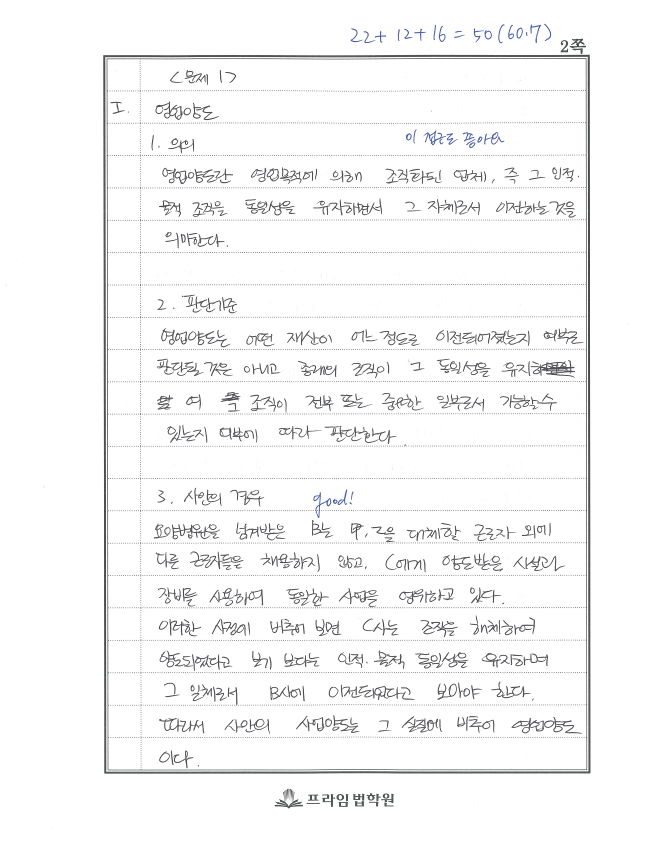 22 + 12 + 16 = 50 (60.7)
2쪽
<문제 1>
I. 영업양도
1. 의의
이 접근도 좋아요
영업양도란 영업목적에 의해 조직화된 업체, 즉 그 인적·
물적 조직을 동일성을 유지하면서 그 자체로서 이전하는 것을
의미한다.
2. 판단기준
영업양도는 어떤 재산이 어느 정도로 이전되어졌는지 여부로
판단될 것은 아니고 종래의 조직이 그 동일성을 유지하
여 그 조직이 전부 또는 중요한 일부로서 기능할 수
있는지 여부에 따라 판단한다.
3. 사안의 경우
good!
요양병원을 넘겨받은 B는 甲, 乙을 대체할 근로자 외에
다른 근로자들은 채용하지 않고, C에게 양도받은 시설과
장비를 사용하여 동일한 사업을 영위하고 있다.
이러한 사정에 비추어 보면 C사는 조직을 해체하여
양도되었다고 보기 보다는 인적·물적 동일성을 유지하며
그 일체로서 B사에 이전되었다고 보아야 한다.
따라서 사안의 사업양도는 그 실질에 비추어 영업양도
이다.
프라임법학원